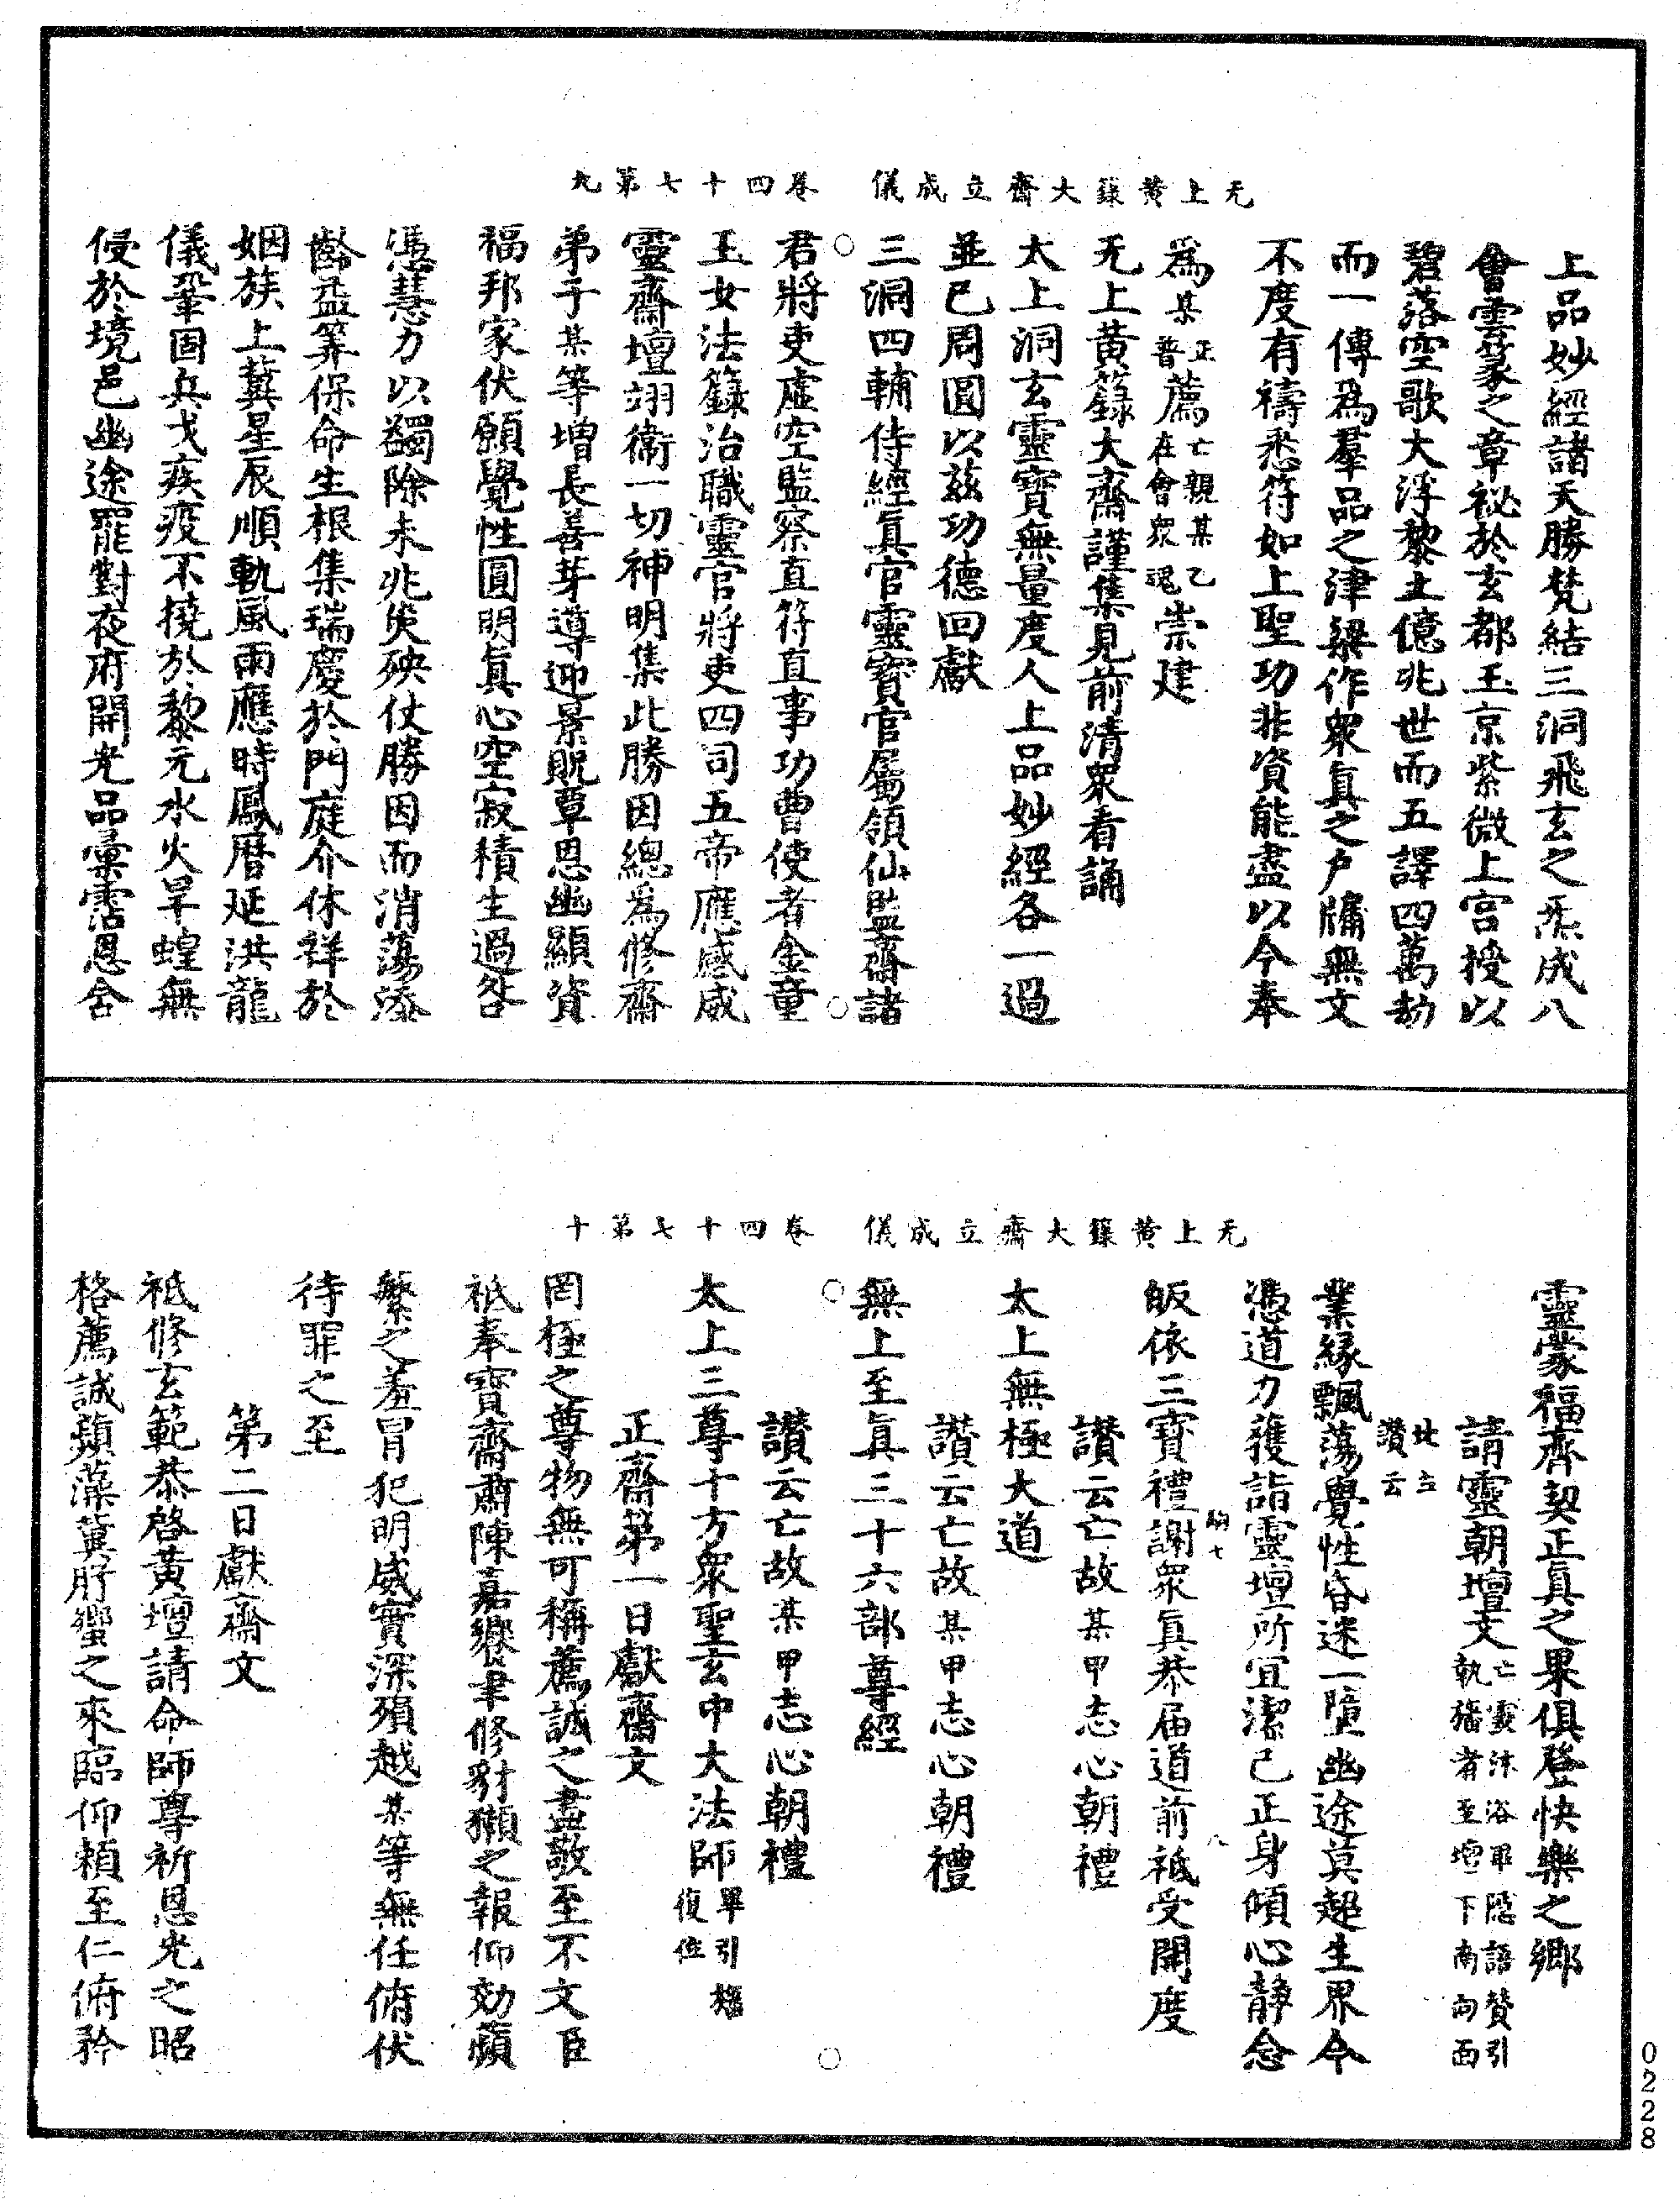 无上黃籙大齋立成儀　卷四十七第九
上品妙經諸天勝梵結三洞飛玄之炁成八
會雲篆之章祕於玄都玉京紫微上宮授以
碧落空歌大浮黎土億兆世而五譯四萬劫
而一傳為羣品之津梁作衆真之戶牖無文
不度有禱悉符如上聖功非資能盡以今奉
為某正普薦亡親某乙在會眾魂崇建
无上黃籙大齋謹集見前清衆看誦
太上洞玄靈寶無量度人上品妙經各一過
並已周圓以兹功德回獻
三洞四輔侍經真官靈寶官屬領仙監齋諸
君將吏虛空監察直符直事功曹使者金童
玉女法籙治職靈官將吏四司五帝應感威
靈齋壇翊衛一切神明集此勝因總為修齋
弟子某等增長善芽導迎景貺覃恩幽顯資
福邦家伏願覺性圓明真心空寂積生過咎
憑慧力以蠲除未兆災殃仗勝因而消蕩添
齡益筭保命生根集瑞慶於門庭介休祥於
姻族上冀星辰順軌風雨應時鳳曆延洪龍
儀鞏固兵戈疾疫不撓於黎元水火旱蝗無
侵於境邑幽途罷對夜府開光品彙霑恩含
无上黃籙大齋立成儀　卷四十七第十
靈蒙福齊契正真之果俱登快樂之鄉
請靈朝壇文亡靈沐浴畢隱語贊引執旛者至壇下南向面
北立讚云
業緣飄蕩覺性昏迷一墮幽途莫超生界今
憑道力獲詣靈壇所宜潔己正身傾心靜念
皈依三寶禮謝衆真恭届道前祗受開度
讚云亡故某甲志心朝禮
太上無極大道
讚云亡故某甲志心朝禮
無上至真三十六部尊經
讚云亡故某甲志心朝禮
太上三尊十方衆聖玄中大法師畢引旛復位
正齋第一日獻齋文
罔極之尊物無可稱薦誠之盡敬至不文臣
祗奉寶齋肅陳嘉饗聿修豺獺之報仰効蘋
蘩之羞冒犯明威實深殞越某等無任俯伏
待罪之至
第二日獻齋文
祗修玄範恭啓黃壇請命師尊祈恩光之昭
格薦誠蘋藻冀肸蠁之來臨仰賴至仁俯矜
0228